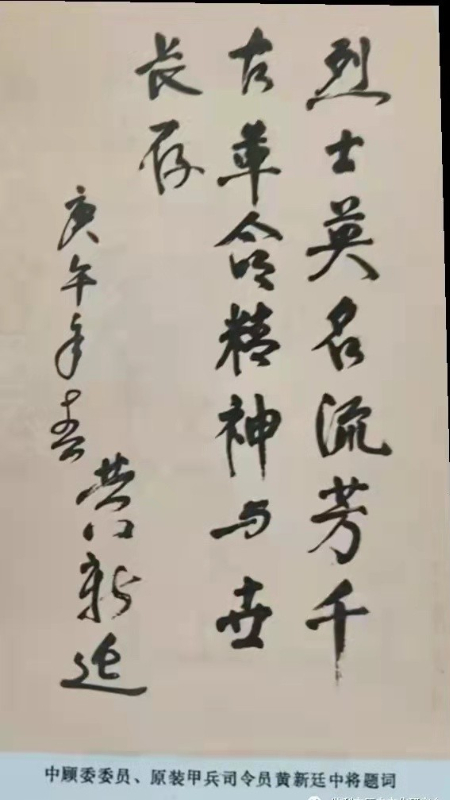 烈士英名流芳千
古革命精神与世
长存
庚午年春
黄新廷
中顾委委员、原装甲兵司令员黄新廷中将题词